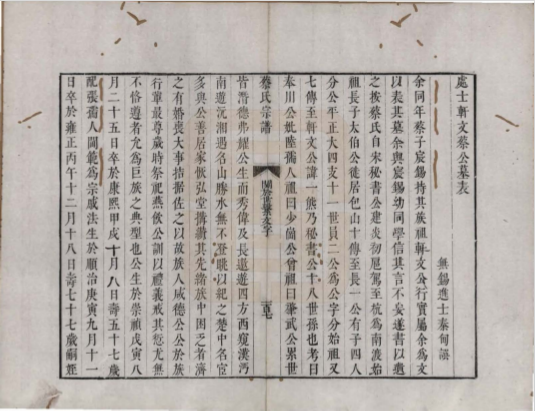 處士軒文蔡公墓表
無錫進士秦甸譔
余同年蔡子宸錫持其族祖軒文公行實屬余為文
以表其墓余與宸錫幼同學信其言不妄遂書以遺
之按蔡氏自宋秘書公建炎初扈駕至杭為南渡始
祖長子太伯公徒居包山十傳至長一公有子四人
分公平正大四支十一世員二公為公字分始祖又
七傳至軒文公諱一熊乃秘書公十八世孫也考曰
奉川公妣陸孺人祖曰少崗公曾祖曰肇武公累世
皆潛德弗耀公生而秀偉及長遠遊四方西窺漢沔
南遊沅湘遇名山勝水無不登眺以紀之楚中名宦
多與公善居家恢弘堂搆纘其先緒族中困乏者濟
之有婚喪大事拮据佐之以故族人咸德公公於族
行輩最尊歲時祭祀燕飲公訓以禮義戒其愆尤無
不恪遵者允為巨族之典型也公生於崇禎戊寅八
月二十五日卒於康熙甲戌十月八日壽五十七歲
配張孺人閫範為宗戚法生於順治庚寅九月十一
日卒於雍正丙午十二月十八日壽七十七歲嗣姪
蔡氏宗譜